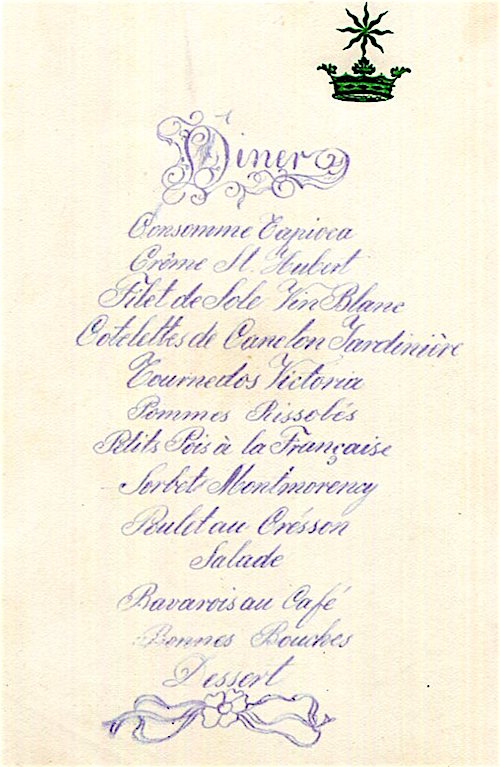 Diner
Consomme Tapioca
Crême St. Hubert
Filet de Sole Vin Blanc
Cotelettes de Caneton Jardinière
Tournedos Victoria
Pommes Rissolés
Petits Pois à la Française
Sorbet Montmorency
Poulet au Crésson
Salade
Bavarois au Café
Bonnes Bouches
Dessert